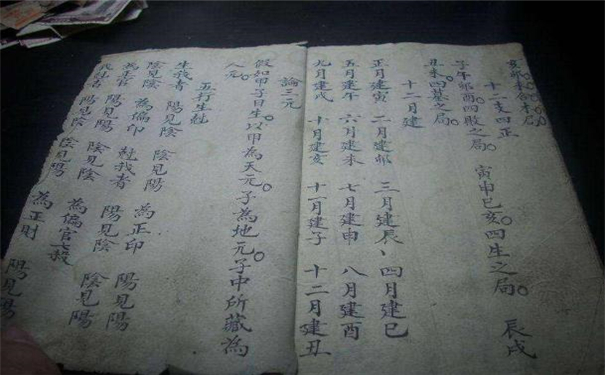 亥卯未木局
十二支四正
子午卯酉。四敗之局。 寅申巳亥。四生之局。 辰戌
丑未。四墓之局。
十二月建
正月建寅 二月建卯 三月建辰、四月建巳
五月建午 六月建未 七月建申 八月建酉
九月建戌 十月建亥 十一月建子 十二月建丑
論三元
假如甲子日生。以甲為天元。子為地元。子中所藏為
人元。
五行生尅
生我者 陽見陰 陰見陽 為正印 陽見陽
陰見陰 為偏印 尅我者 陽見陰 陰見陽
為正官 陽見陽 陰見陰 為偏官七殺
陽見陰 陰見陽 為正財 陽見陽